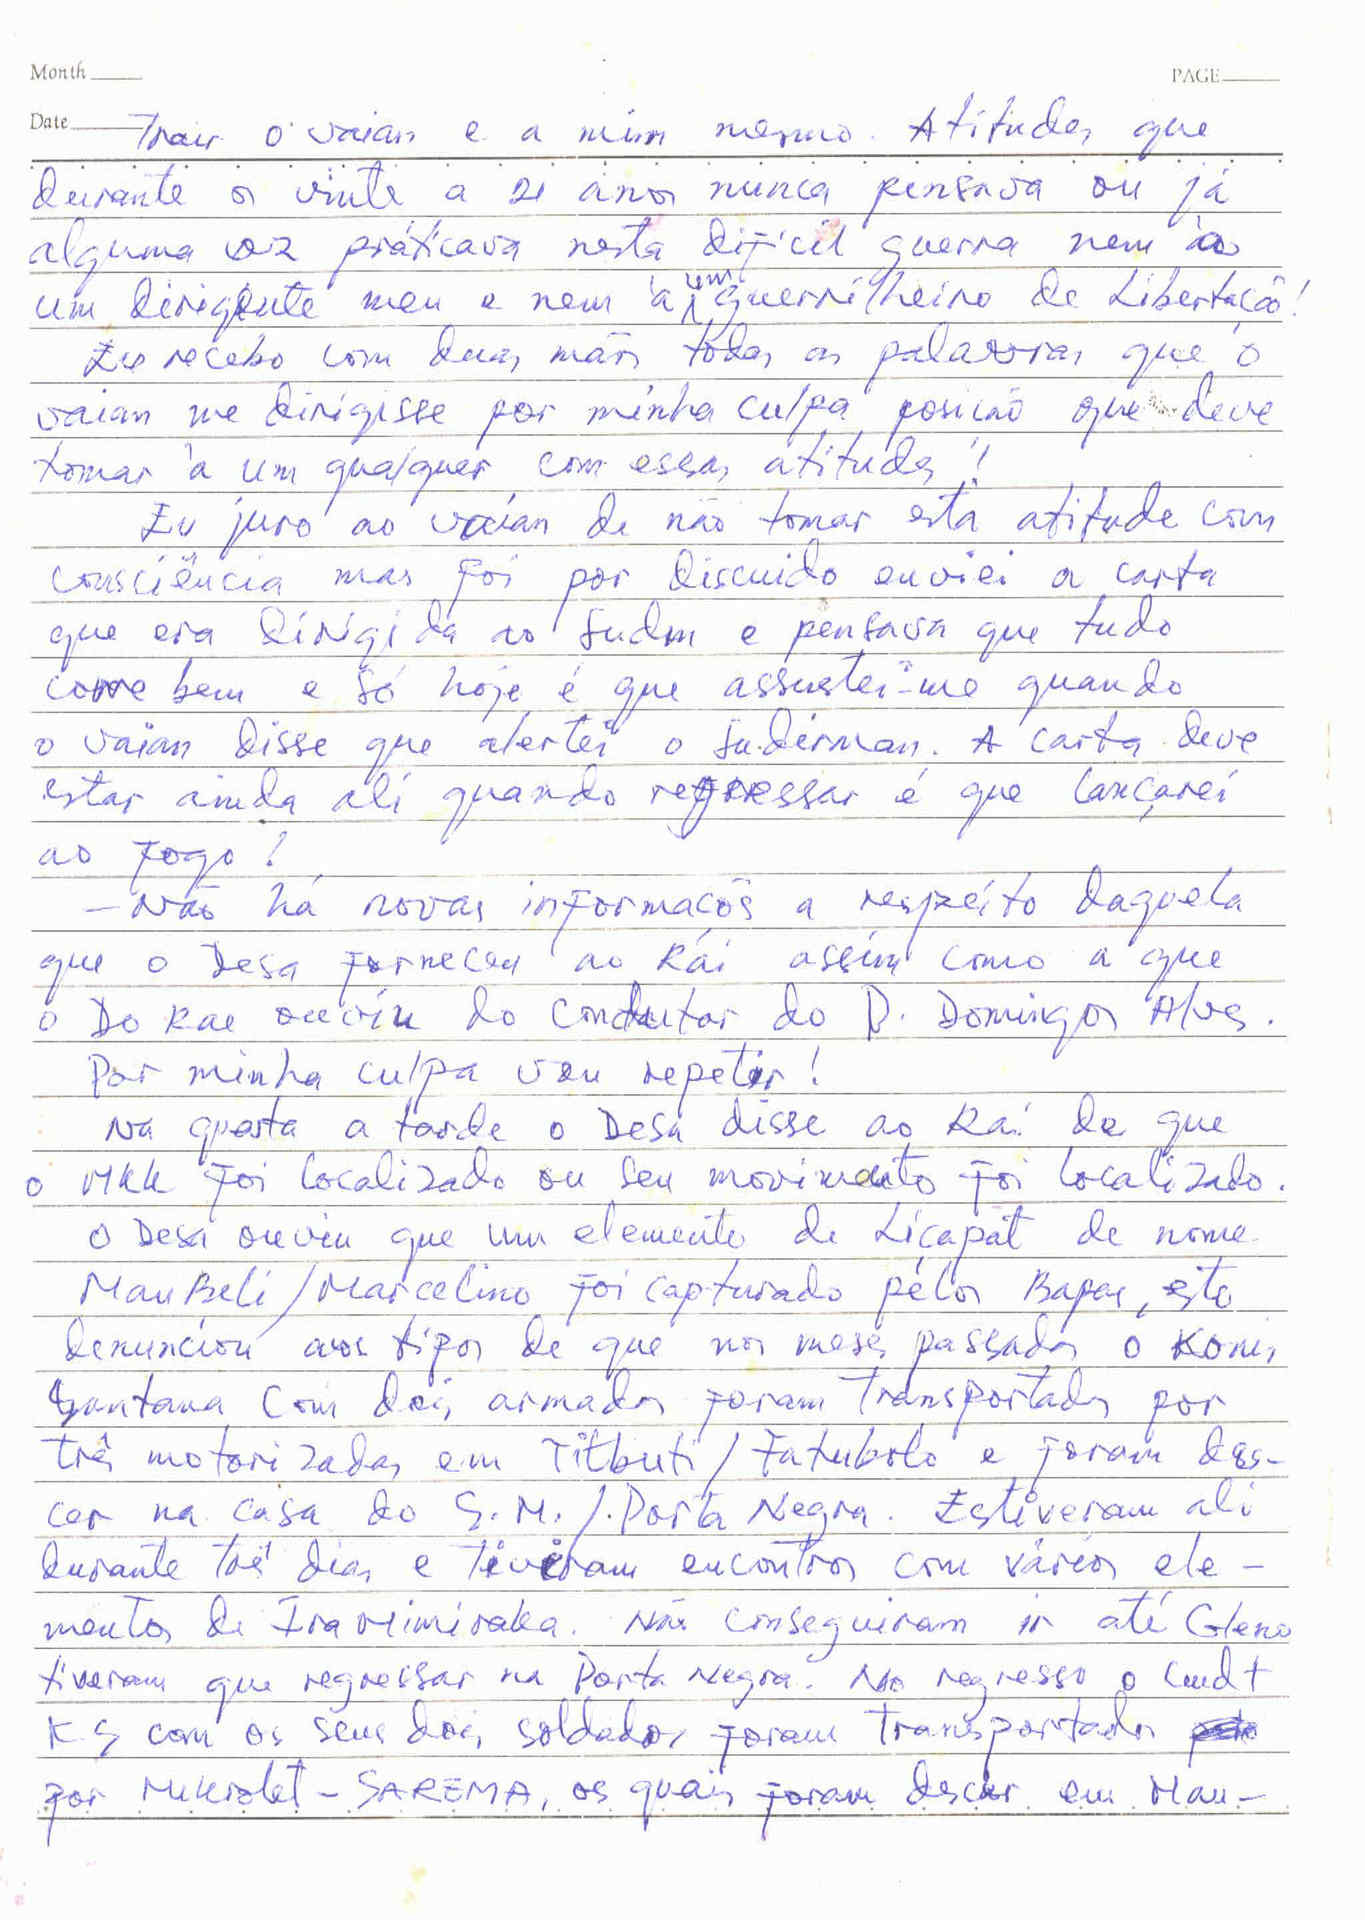 Month
PAGE
Date
Trair o vaian e a mim mesmo. Atitudes que
durante os vinte a 21 anos nunca pensava ou já
alguma vez práticava nesta difícil guerra nem ào
um dirigente meu e nem à um guerrilheiro de Libertação!
Eu recebo com duas mãos todas as palavras que o
vaian me dirigisse por minha culpa posicão que deve
tomar à um qualquer com essas atitudes!
Eu juro ao vaian de não tomar esta atitude com
consciência mas foi por discuido enviei a carta
que era dirigida ao Sudm e pensava que tudo
corre bem e só hoje é que assustei-me quando
o vaian disse que alertei o Suderman. A carta deve
estar ainda ali quando regressar é que lançarei
ao fogo!
- Não há novas informacõs a respeito daquela
que o Desa forneceu ao Rái assim como a que
o Do Rae ouviu do Condutor do D. Domingos Alves.
Por minha culpa vou repetir!
Na quarta a tarde o Desa disse ao Rai de que
o MKK foi localizado ou seu movimento foi localizado.
O Desa ouviu que um elemento de Liçapát de nome
MauBeli/Marcelino foi capturado pélos Bapas, este
denunciou aos tipos de que nos meses passados o Konis
Santana com dois armados foram transportados por
três motorizadas em Titbuti/Fatubolo e foram des-
cer na casa do S.M./.Porta Negra. Estiveram ali
durante três dias e tiveram encontros com vários ele-
mentos de Ira Mimiraka. Não conseguiram ir até Gleno
tiveram que regressar na Porta Negra. No regresso o Cmdt
K.S com os seus dois soldados foram transportados
por Mikrolet - SAREMA, os quais foram descer em Mau-